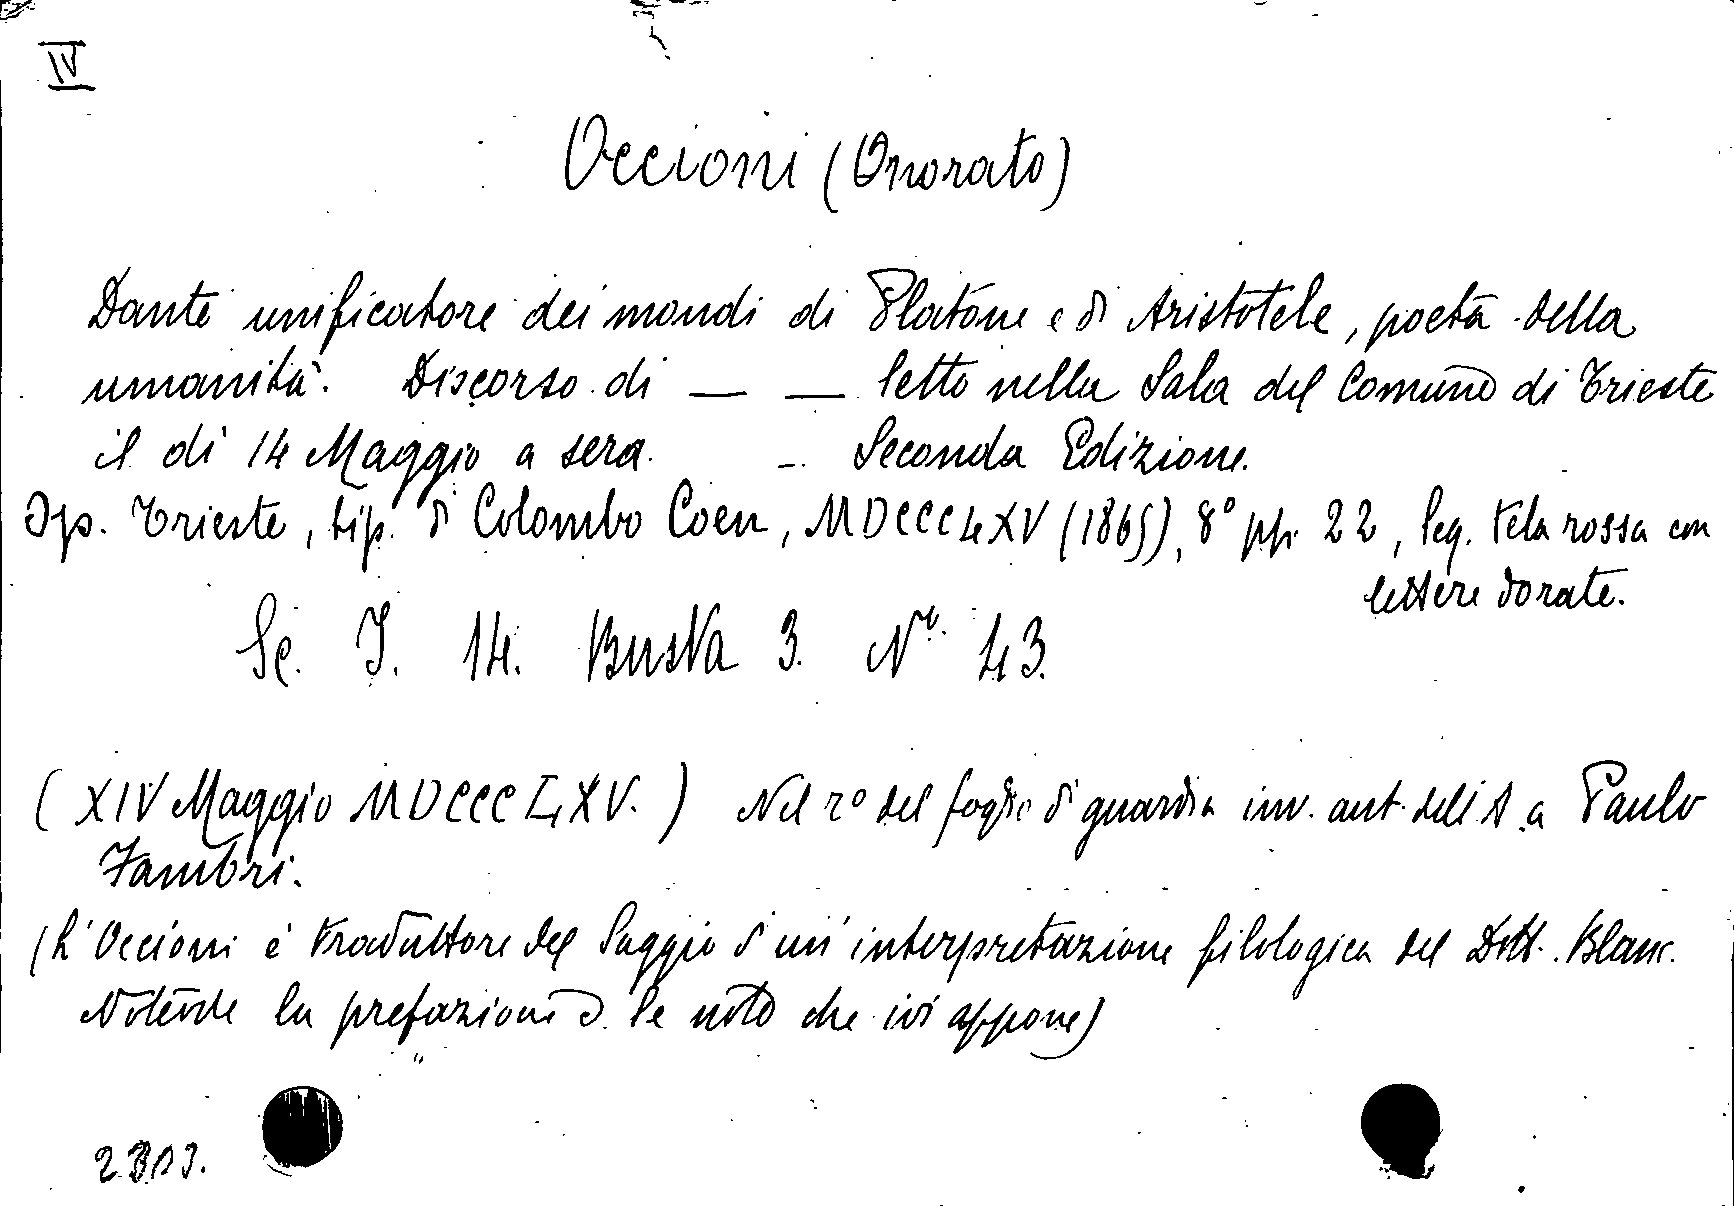 IV
Occioni (Onorato)
Dante unificatore dei mondi di Platone e di Aristotele, poeta della
umanità. Discorso di — — letto nella Sala del Comune di Trieste
il dì 14 Maggio a sera. — Seconda Edizione.
Op. Trieste, tip. di Colombo Coen, MDCCCLXV (1865), 8° pp. 22, leg. tela rossa con
lettere dorate.
Sc. I. 14. Busta 3. N.° 43.
(XIV Maggio MDCCCLXV.) Nel r° del foglio di guardia inv. aut. dell'A. a Paulo
Fambri.
(L'Occioni è traduttore del Saggio d'un'interpretazione filologica del Dott. Blanc.
la prefazione e le note che ivi appone)